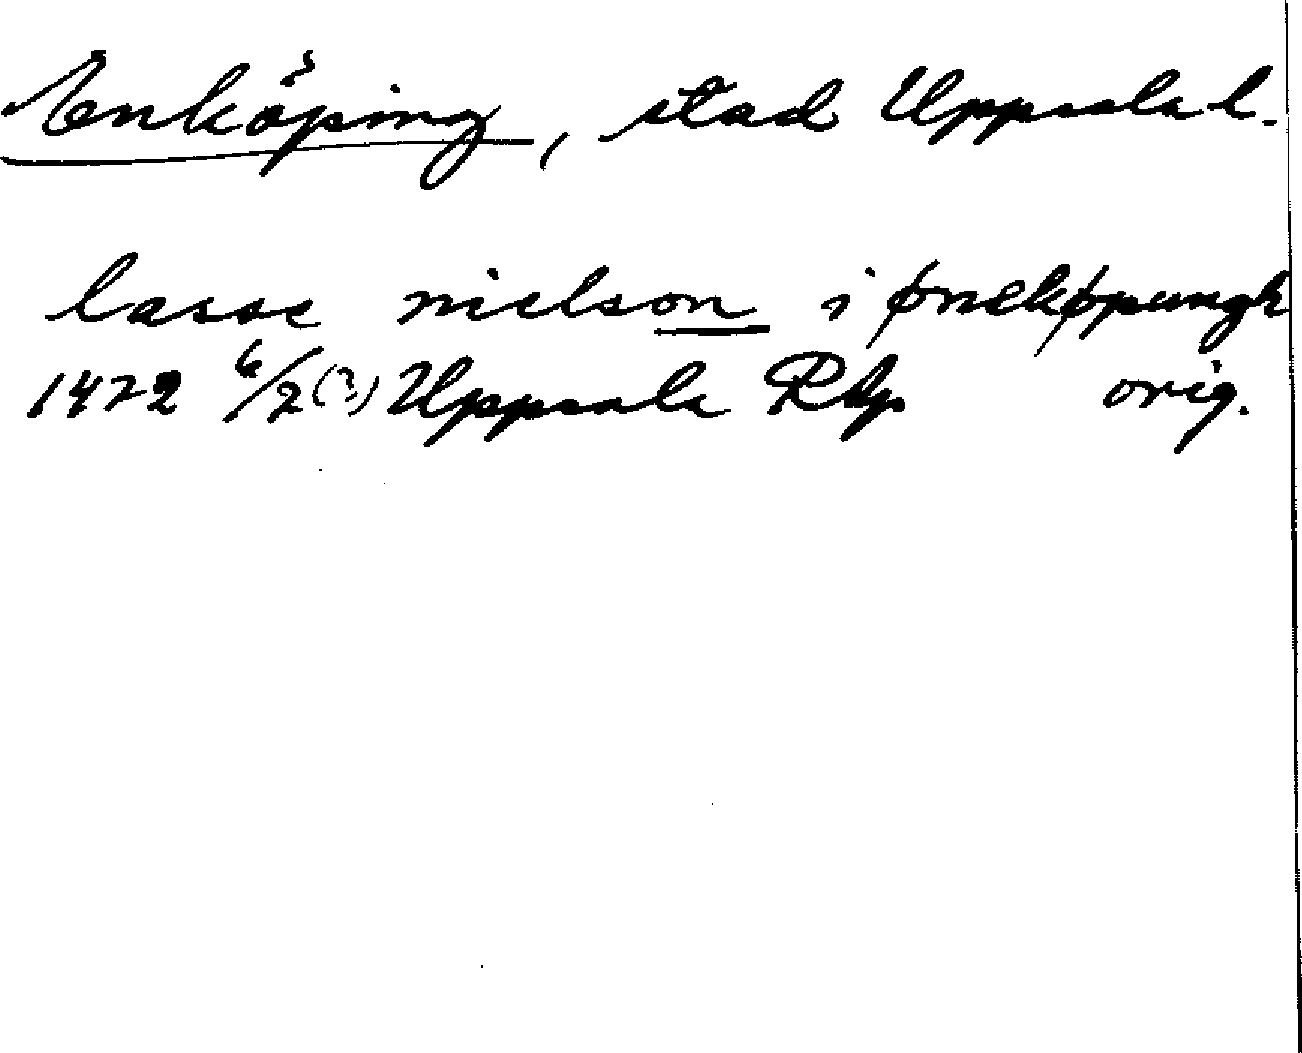 Enköping, stad Uppsala l.
lasse nielson i ønekøpungh
1472 6/2(?) Uppsala RAp orig.